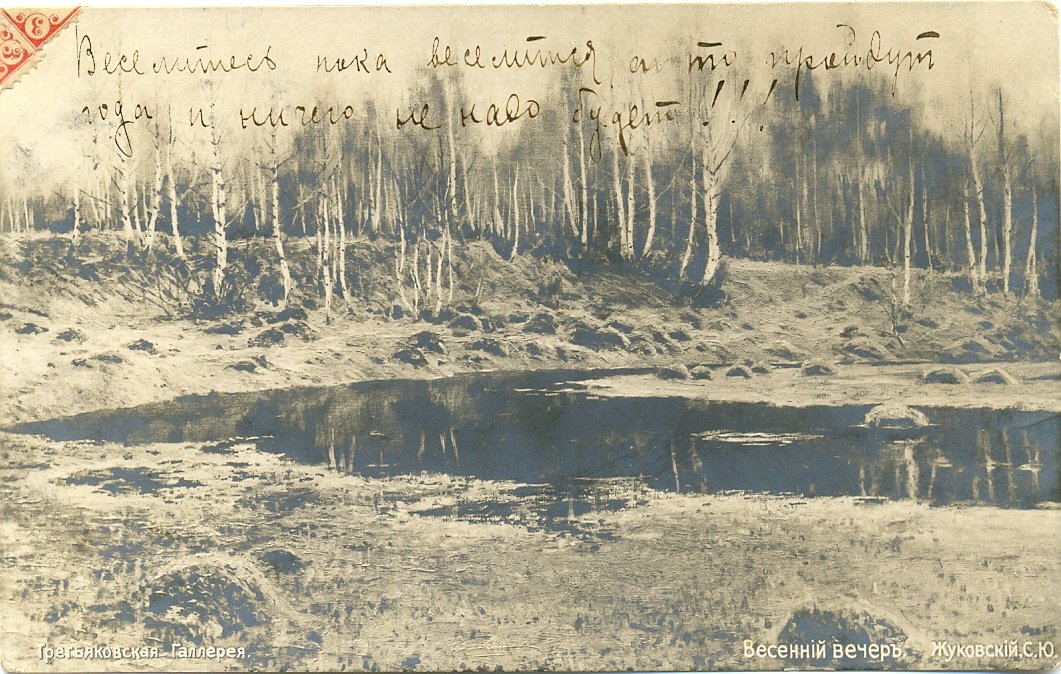 Веселитесь пока веселится, а то пройдут
года и ничего не надо будет!!!
Третьяковская Галлерея.
Весенній вечеръ. Жуковскій, С.Ю.